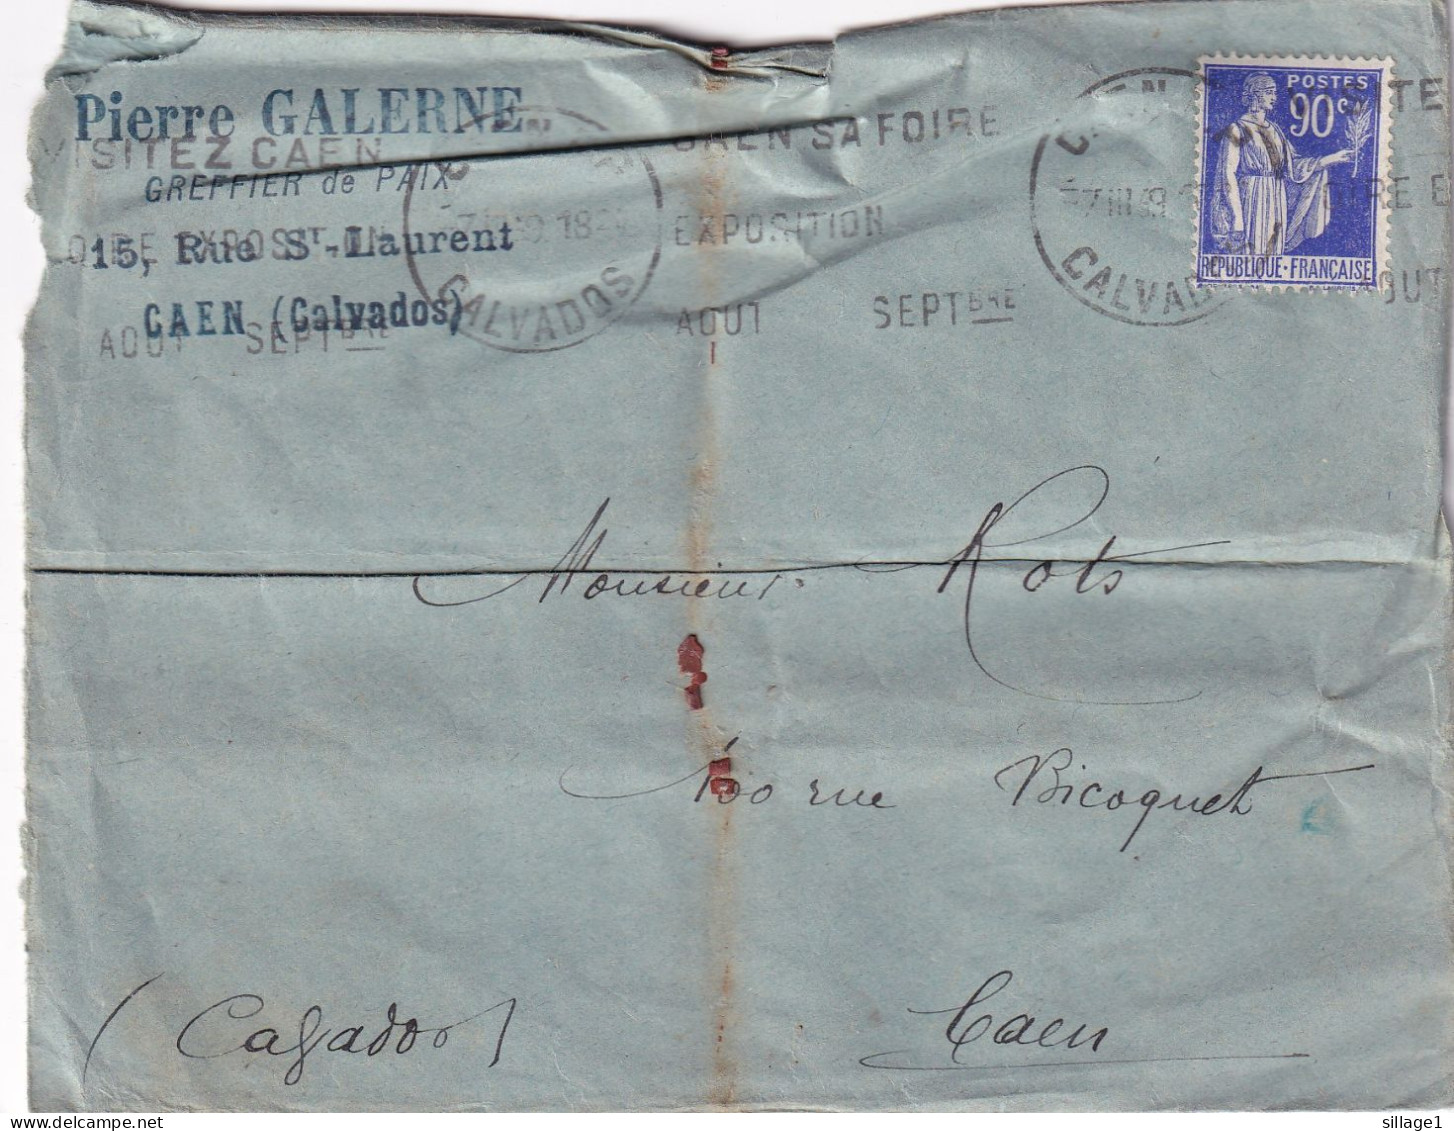 Pierre GALERNE
GREFFIER de PAIX
15, Rue St-Laurent
CAEN (Calvados)
VISITEZ CAEN
EXPOSITION
AOUT SEPTBRE
CALVADOS
CAEN SA FOIRE
EXPOSITION
AOUT SEPTBRE
CALVADOS
POSTES
90c
REPUBLIQUE-FRANÇAISE
AOUT
Monsieur Rots
rue Bicoquet
Caen
(Calvados)
delcampe.net
sillage1